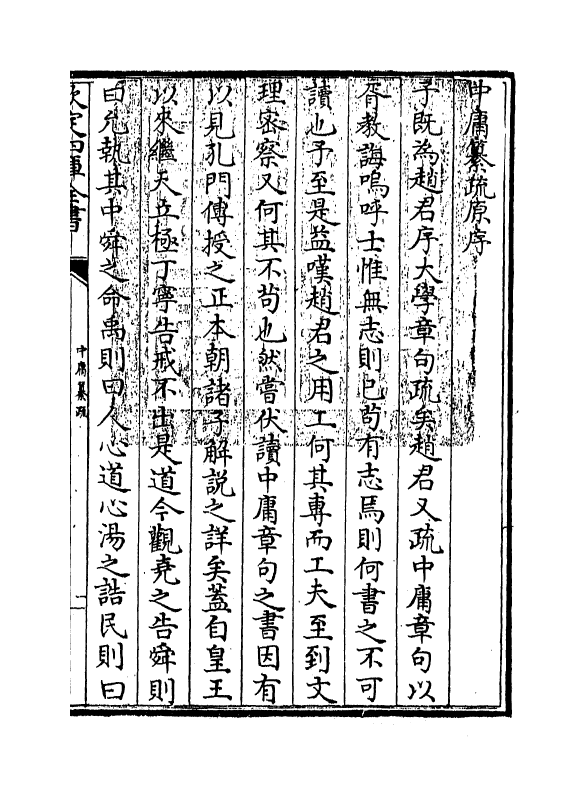 中庸纂疏原序
予既為趙君序大學章句疏矣趙君又疏中庸章句以
胥教誨嗚呼士惟無志則已茍有志焉則何書之不可
讀也予至是益嘆趙君之用工何其專而工夫至到文
理密察又何其不茍也然嘗伏讀中庸章句之書因有
以見孔門傳授之正本朝諸子解說之詳矣蓋自皇王
以來繼天立極丁寧告戒不出是道今觀堯之告舜則
曰允執其中舜之命禹則曰人心道心湯之誥民則曰
欽定四庫全書
中庸纂疏